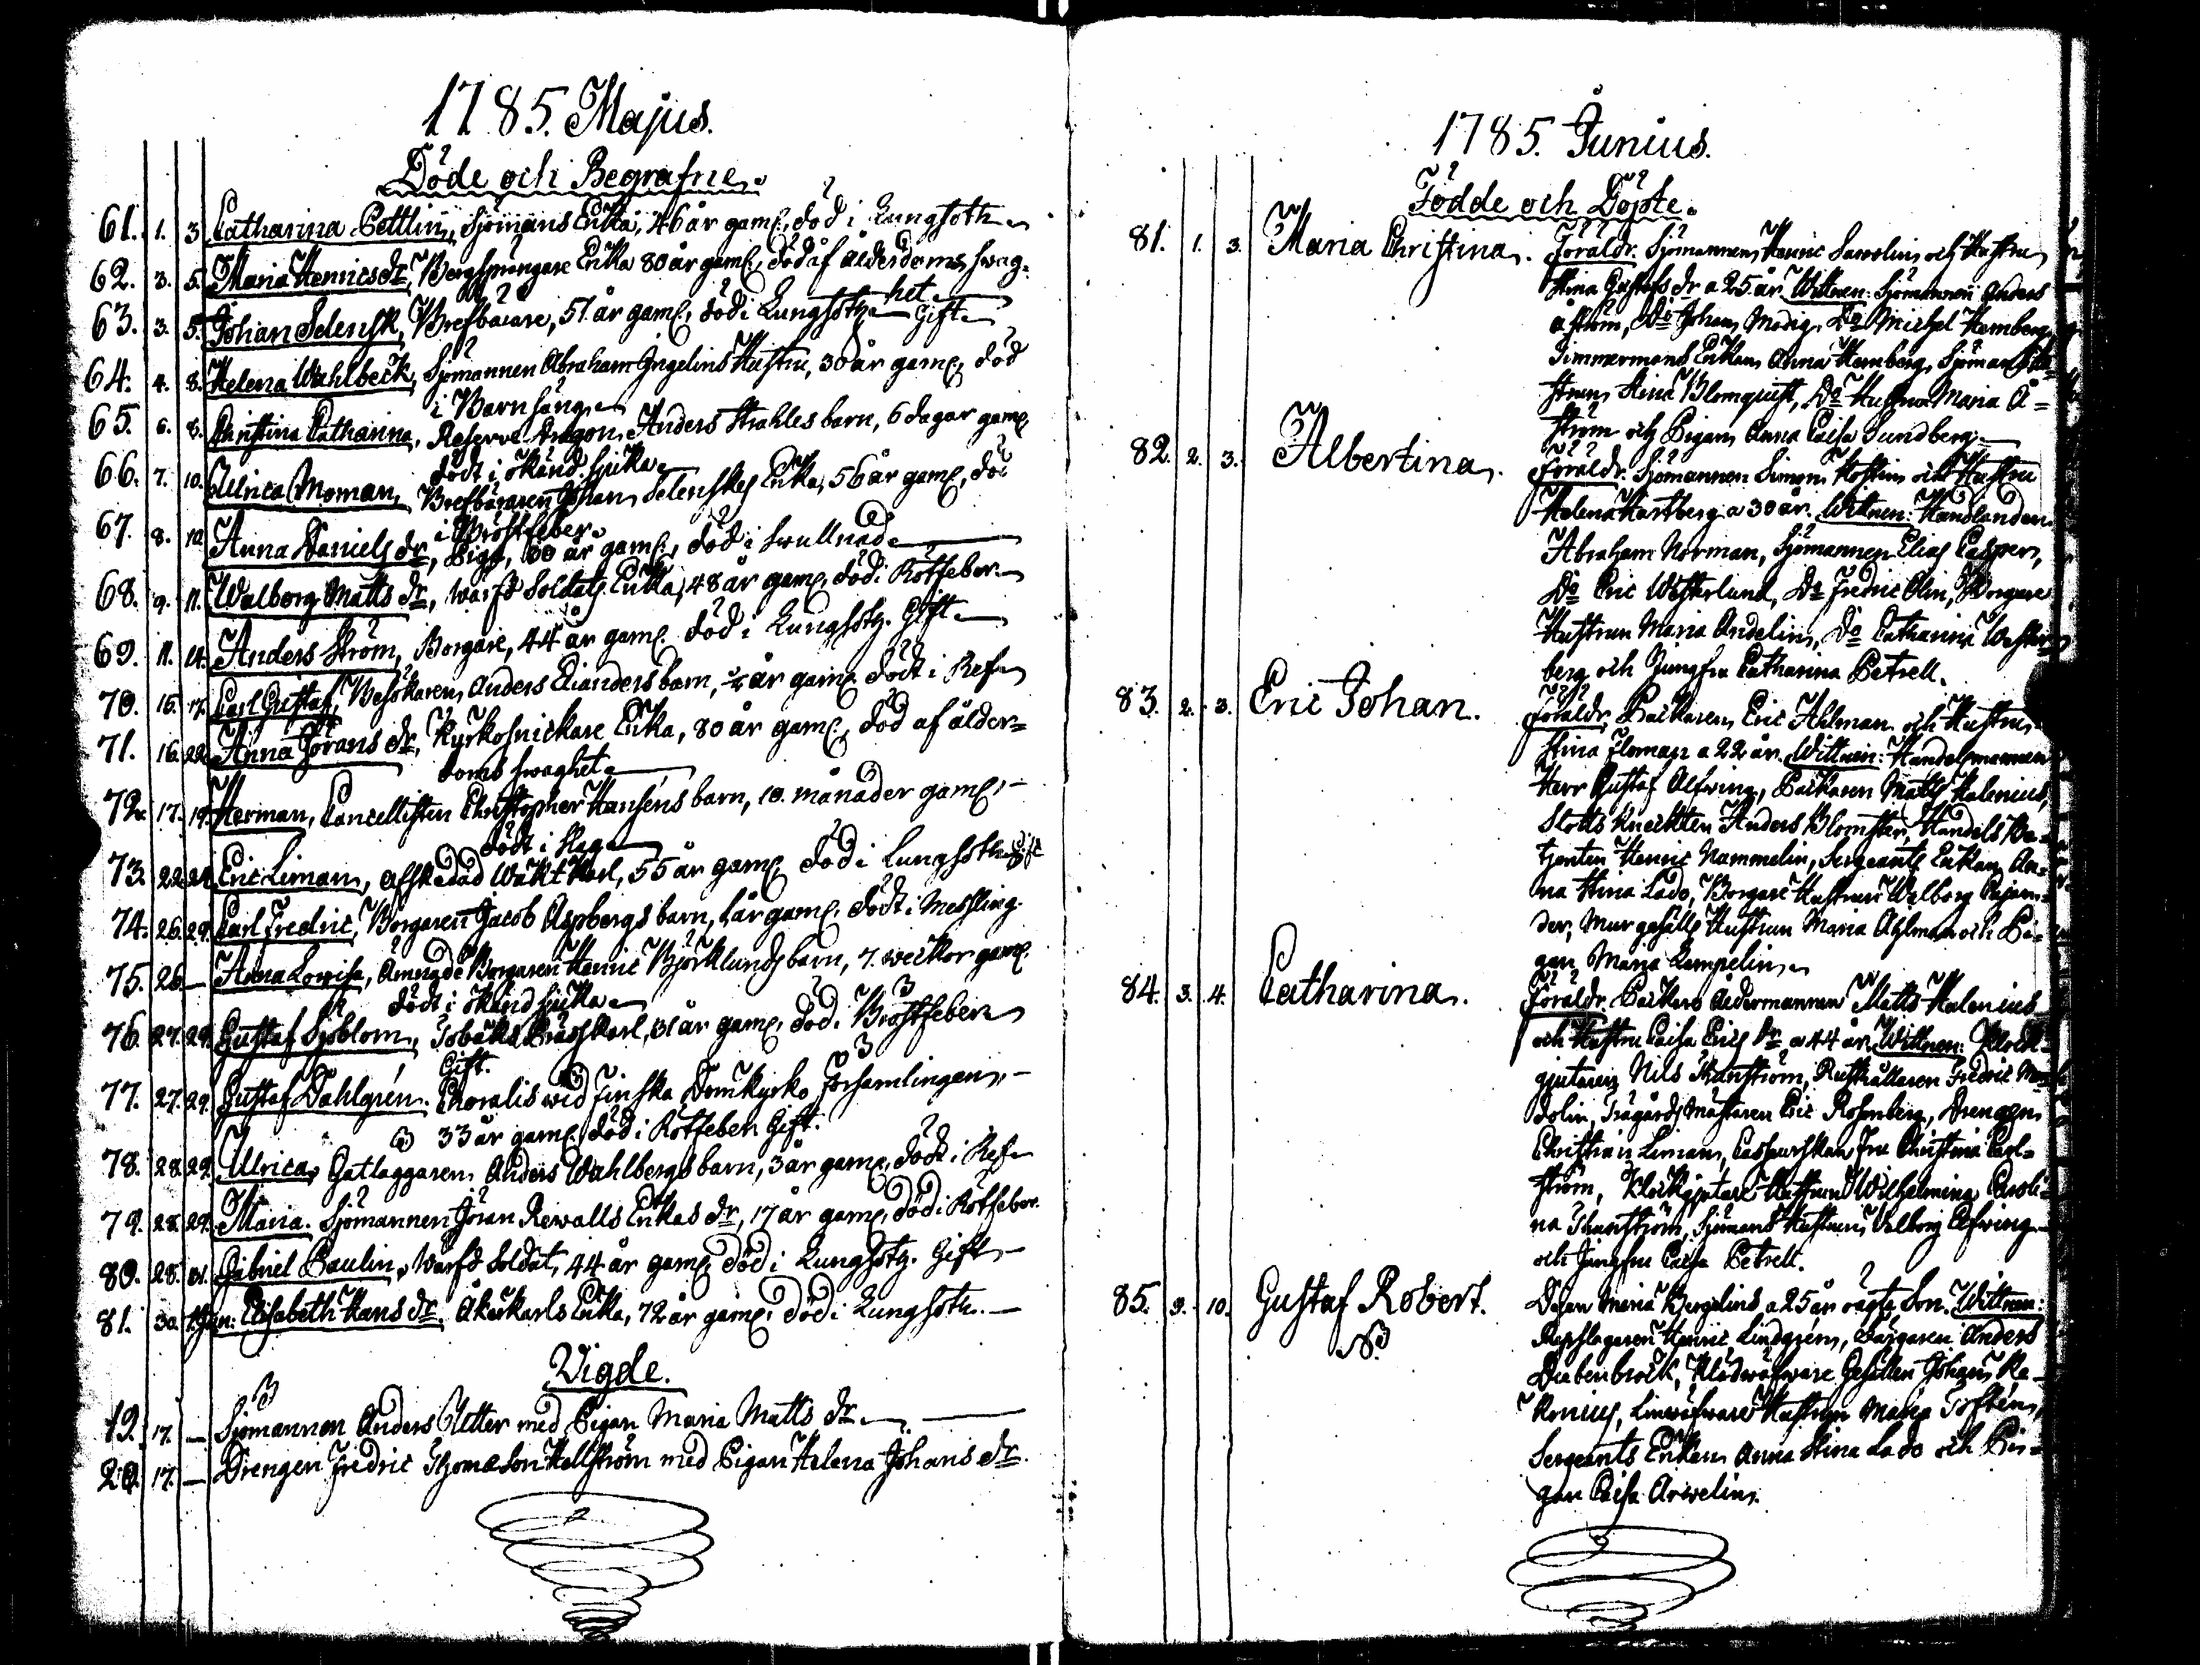 1785. Majus.
Döde och Begrafne.
61. 1. 3. Catharina Pettlin, Sjömans Enka, 46 år gaml, död i Lungsoth
62. 3. 5. Maria Henricsdr, Bergsprängare Enka 80 år gaml, död af ålderdoms swag-
het
63. 3. 5. Johan Selensk, Brefbärare, 51 år gaml, död i Lungsoth Gift
64. 4. 8. Helena Wahlbeck, Sjömannen Abraham Ingelins Hustru, 30 år gaml, död
i Barnsäng
65. 6. 8. Christina Catharina, Reserve Dragon Anders Strahles barn, 6 dagar gaml
födt i okänd sjuka
66. 7. 10. Ulrica Moman, Brefbäraren Johan Selenskes Enka, 56 år gaml, död
i Bröstfeber
67. 8. 10. Anna Daniels dr, Piga, 60 år gaml, död i Swullnad
68. 9. 11. Walborg Matts dr, Wärfd Soldats Enka, 48 år gaml, död i Rötfeber
69. 11. 14. Anders Ström, Borgare, 44 år gaml död i Lungsoth. Gift
70. 15. 17. Carl Gustaf, Besökaren Anders Elianders barn, år gaml dödt i Ref
71. 16. 22. Anna Görans dr, Kyrkosnickare Enka, 80 år gaml, död af ålder-
doms swaghet
72. 17. 19. Herman, Cancellisten Christopher Hanséns barn, 10. månader gaml,
dödt i Slag
73. 22. 24. Eric Liman, afskedad Wakt Karl, 55 år gaml, död i Lungsoth Gift
74. 26. 29. Carl Fredric, Borgaren Jacob Aspbergs barn, 1 år gaml. dödt i Messling
75. 26. — Anna Lovisa, Borgaren Henric Björklunds barn, 7. weckor gaml.
dödt i okänd sjuka
76. 27. 29. Gustaf Sjöblom, Tobaks Karl, 31 år gaml, död i Bröstfeber
Gift.
77. 27. 29. Gustaf Dahlgrén. Choralis wid Finska Domkyrko Församlingen,
33 år gaml, död i Rötfeber Gift.
78. 28. 29. Ulrica, Gatläggaren Anders Wahlbergs barn, 3 år gaml, dödt i Ref
79. 28. 29. Maria. Sjömannen Göran Rewalls Enkas dr, 17 år gaml, död i Rötfeber.
80. 28. 31. Gabriel Paulin, Wärfd Soldat, 44 år gaml död i Lungsoth. Gift
81. 30. 1 Jun: Elisabeth Hans dr. Åkerkarls Enka, 72 år gaml, död i Lungsoth.
Vigde.
19. 17. — Sjömannen Anders Utter med Pigan Maria Matts dr.
20. 17. — Drengen Fredric Thomæson Hellström med Pigan Helena Johans dr.
1785. Junius.
Födde och Döpte.
81. 1. 3. Maria Christina. Föräldr. Sjömannen Henric Sawolin och Hustru
Stina Gustafs dr a 25 år. Wittnen: Sjömannen Anders
Åström, Do Johan Modig, Do Michel Hemberg,
Timmermans Enkan Anna Hemberg, Sjömans Hu-
strun Stina Blomquist, Do Hustrun Maria Å-
ström och Pigan Anna Caisa Sundberg.
82. 2. 3. Albertina. Föräldr. Sjömannen Simon Koskin och Hustru
Helena Hartberg a 30 år. Wittnen: Handlanden
Abraham Norman, Sjömannen Elias Casper,
Do Eric Westerlund, Do Fredric Olin, Borgare
Hustrun Maria Andelin, Do Catharina Wester-
berg och Jungfru Catharina Petrell.
83. 2. 3. Eric Johan. Föräldr. Backaren Eric Ahlman och Hustru
Stina Floman a 22 år. Wittnen: Handelsmannen
Herr Gustaf Alfwing, Backaren Matts Halenius,
Slotts Kneckten Anders Blomster, Handels Be-
tjenten Henric Nammelin, Sergeants Enkan An-
na Stina Lado, Borgare Hustrun Walborg Cajan-
der, Murgesälls Hustrun Maria Ahlman och Pi-
gan Maria Kempelin
84. 3. 4. Catharina. Föräldr. Backare Åldermannen Matts Halenius
och Hustru Caisa Erics dr a 44 år. Wittnen: Klock-
gjutaren Nils Thanström, Rusthållaren Fredric
dolin, Trägårds Mästaren Eric Rosenberg, Drengen
Christian Liman, Fru Christina Carl-
ström, Klockgjutare Hustrun Wilhelmina Caroli-
na Thanström, Sjömans Hustrun Walborg Elfwing
och Jungfru Caisa Petrell.
85. 9. 10. Gustaf Robert. Pigan Maria Bergelins a 25 år oägte Son. Wittnen:
Repslagaren Henric Lindgrén, Färgaren Anders
Diebenbrock, Klädeswäfware Gesällen Johan Re-
konius, Linwäfware Hustrun Maria Toftén,
Sergeants Enkan Anna Stina Lado och Pi-
gan Caisa Arwelin.